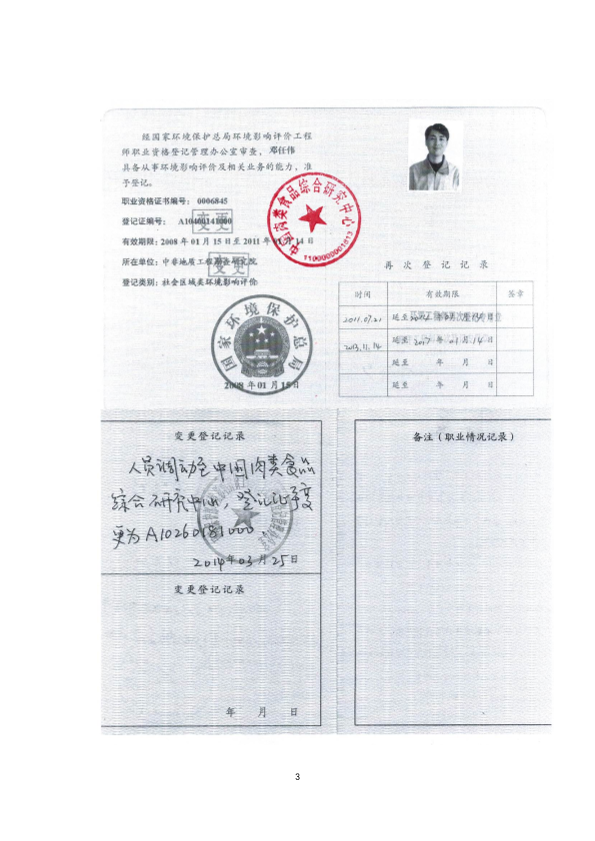 经国家环境保护总局环境影响评价工程
师职业资格登记管理办公室审查，邓任伟
具备从事环境影响评价及相关业务的能力，准
予登记。
职业资格证书编号： 0006845
登记证编号： A10400141000
变更
有效期限：2008 年 01 月 15 日至 2011 年 01 月 14 日
所在单位：中非地质工程勘查研究院
变更
登记类别：社会区域类环境影响评价
国家环境保护总局
2008 年 01 月 15 日
中国肉类食品综合研究中心
再次登记记录
时间 有效期限 签章
2011.07.21 延至
2013.11.14 延至 2017 年 01 月 14 日
延至 年 月 日
延至 年 月 日
变更登记记录
人员调动至中国肉类食品
综合研究中心，登记证号变
更为A10260181000.
2014年03月25日
变更登记记录
年 月 日
备注（职业情况记录）
3